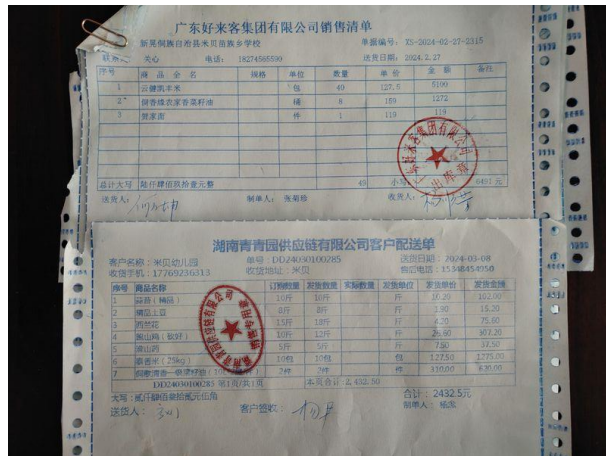 广东好来客集团有限公司销售清单
新晃侗族自治县米贝苗族乡学校 单据编号: XS-2024-02-27-2315
联系人 关心 电话: 18274565590 送货日期: 2024.2.27
序号 商品全名 规格 单位 数量 单价 金额 备注
1 云健凯丰米 包 40 127.5 5100
2 侗香缘农家香菜籽油 桶 8 159 1272
3 贺家面 件 1 119 119
总计大写 陆仟肆佰玖拾壹元整 49 小写 6491元
送货人: 制单人: 张菊珍 收货人:
广东好来客集团有限公司
湖南青青园供应链有限公司客户配送单
客户名称:米贝幼儿园 单号:DD24030100285 送货日期:2024-03-08
收货手机:17769236313 收货地址:米贝 售后电话:15348454950
序号 商品名称 订购数量 发货数量 实际数量 发货单位 发货单价 发货金额
1 蒜苗(精品) 10斤 10斤 斤 10.20 102.00
2 精品土豆 8斤 8斤 斤 1.90 15.20
3 西兰花 15斤 18斤 斤 4.20 75.60
4 斤 307.20
5 淮山药 5斤 5斤 斤 7.50 37.50
6 (25kg) 10包 10包 包 127.50 1275.00
7 2件 2件 件 310.00 620.00
DD24030100285 第1页/共1页 本页合计:2432.50
大写:贰仟肆佰叁拾贰元伍角 合计: 2432.5元
送货人: 客户签收: 制单人: